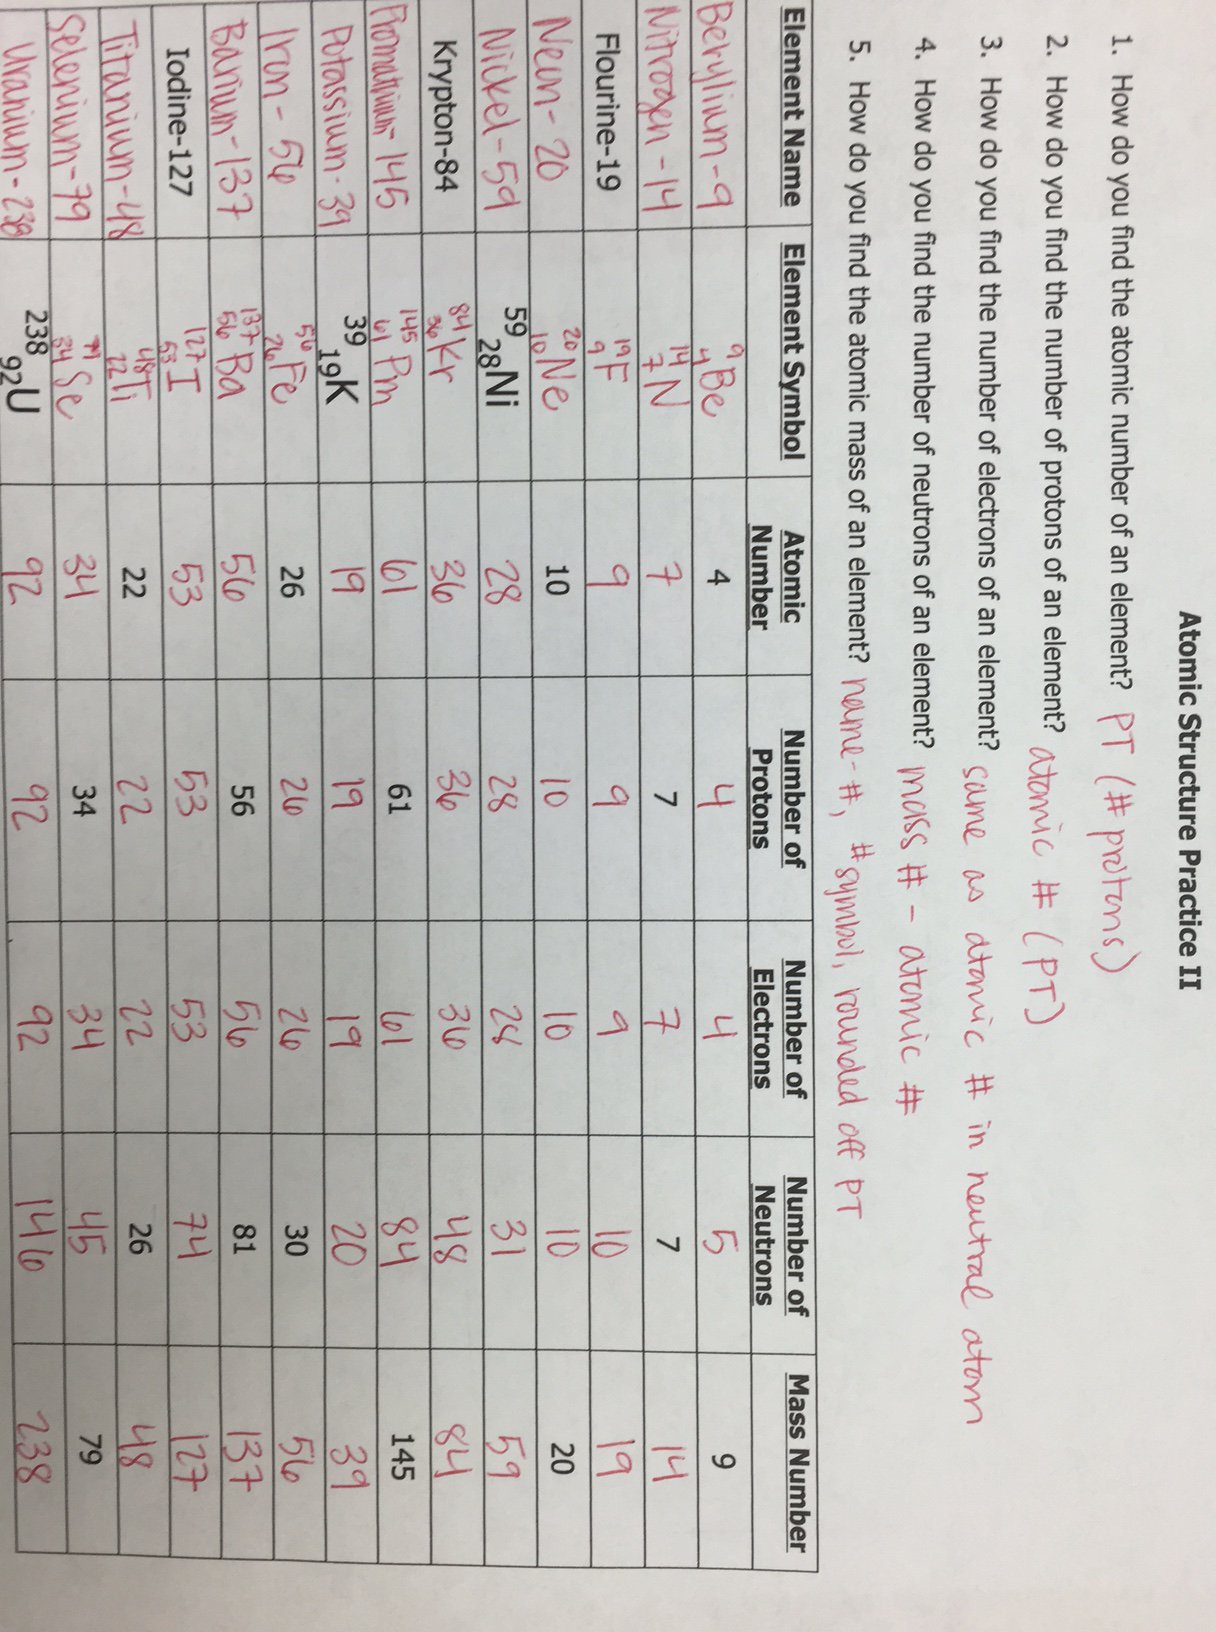 Atomic Structure Practice II
1. How do you find the atomic number of an element? PT (# protons)
2. How do you find the number of protons of an element? atomic # (PT)
3. How do you find the number of electrons of an element? same as atomic # in neutral atom
4. How do you find the number of neutrons of an element? mass # - atomic #
5. How do you find the atomic mass of an element? name-#, #symbol, rounded off PT
Element Name Element Symbol Atomic Number Number of Protons Number of Electrons Number of Neutrons Mass Number
Berylium-9 9 4 Be 4 4 4 5 9
Nitrogen-14 14 7 N 7 7 7 7 14
Flourine-19 19 9 F 9 9 9 10 19
Neon-20 20 10 Ne 10 10 10 10 20
Nickel-59 59 28 Ni 28 28 28 31 59
Krypton-84 84 36 Kr 36 36 36 48 84
145 145 61 Pm 61 61 61 84 145
Potassium-39 39 19 K 19 19 19 20 39
Iron-56 56 26 Fe 26 26 26 30 56
Barium-137 137 56 Ba 56 56 56 81 137
Iodine-127 127 53 I 53 53 53 74 127
Titanium-48 48 22 Ti 22 22 22 26 48
Selenium-79 79 34 Se 34 34 34 45 79
Uranium-238 238 92 U 92 92 92 146 238